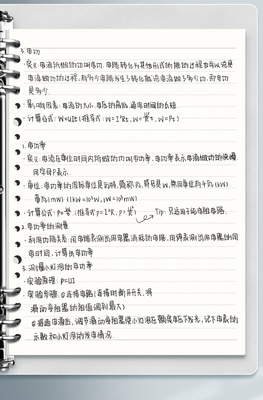 3. 电功
·定义:电流所做的功叫电功. 电能转化为其他形式的能的过程也可以说是
电流做功的过程, 有多少电能发生了转化就说电流做了多少功, 即电功
是多少.
·影响因素: 电流的大小、电压的高低、通电时间的长短.
·计算公式: W=UIt (推导式: W=I²Rt, W= t, W=Pt)
1. 电功率
·定义: 电流在单位时间内所做的功叫电功率. 电功率表示电流做功的快慢.
用字母P表示.
·单位: 电功率的国际单位是瓦特, 简称瓦, 符号是W, 常用单位有千瓦 (kW).
毫瓦(mW) (1kW=10³W, 1W=10³mW)
·计算公式: P= (推导式: P=I²R, P= ) Tip: 只适用于纯电阻电路.
2. 电功率的测量
·利用电能表测出用电器消耗的电能, 用钟表测出用电器的用
电时间, 计算出电功率
3. 测量小灯泡的电功率
·实验原理: P=UI
·实验步骤: ①连接电路(连接时断开开关, 将
滑动变阻器的阻值调到最大)
②调节滑动变阻器使小灯泡在额定电压下发光, 记下电表的
示数和小灯泡的发光情况.